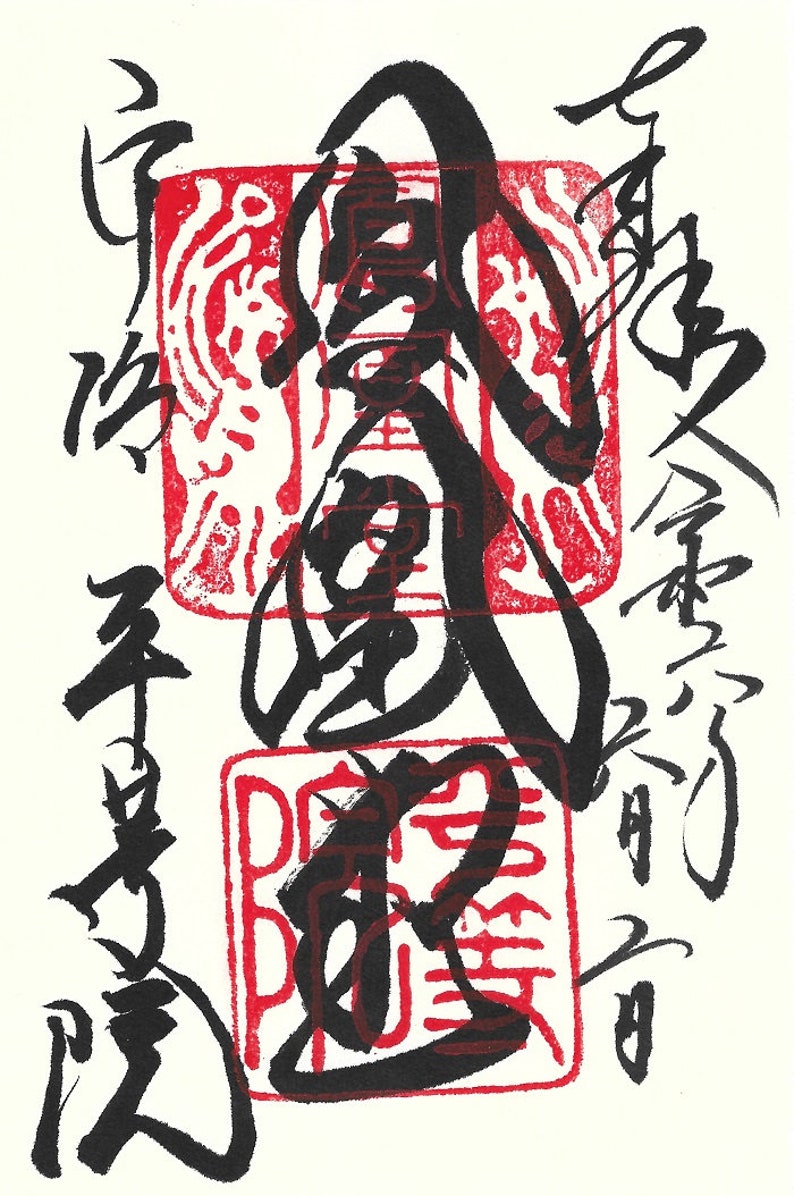 奉拝
六月二日
鳳凰堂
宇治 平等院
鳳凰堂
平等院